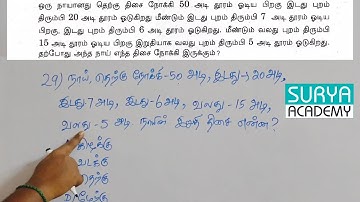 ஒரு நாயானது தெற்கு திசை நோக்கி 50 அடி தூரம் ஓடிய பிறகு இடது புறம்
திரும்பி 20 அடி தூரம் ஓடுகிறது மீண்டும் இடது புறம் திரும்பி 7 அடி தூரம் ஓடிய
பிறகு, இடது புறம் திரும்பி 6 அடி தூரம் ஓடுகிறது. மீண்டும் வலது புறம் திரும்பி
15 அடி தூரம் ஓடிய பிறகு இறுதியாக வலது புறம் திரும்பி 5 அடி தூரம் ஓடுகிறது.
தற்போது அந்த நாய் எந்த திசை நோக்கி இருக்கும்?
29) நாய், தெற்கு நோக்கி-50 அடி, இடது-20 அடி,
இடது-7 அடி, இடது-6 அடி, வலது-15 அடி,
வலது-5 அடி. நாயின் இறுதி திசை என்ன?
வடக்கு
SURYA
ACADEMY